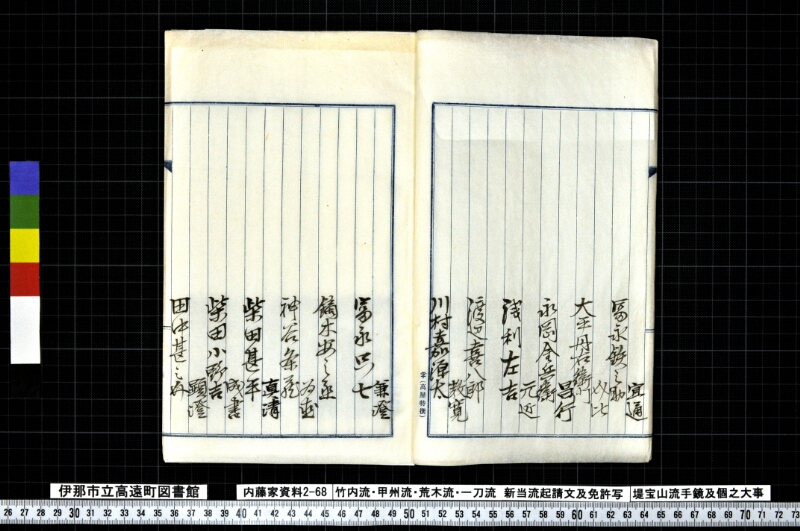 富永鉄之助
宜適
大王丹右衛門
以北
永岡金兵衛
昌行
浅利左吉
元近
渡辺喜八郎
教寛
川村嘉源太
富永只七
兼澄
鏑木安之丞
神谷条蔵
為直
柴田甚平
直溝
柴田小野吉
成書
田中甚之丞
顕澄
伊那市立高遠町図書館
内藤家資料2-68
竹内流・甲州流・荒木流・一刀流 新当流起請文及免許写
堤宝山流手鏡及個之大事